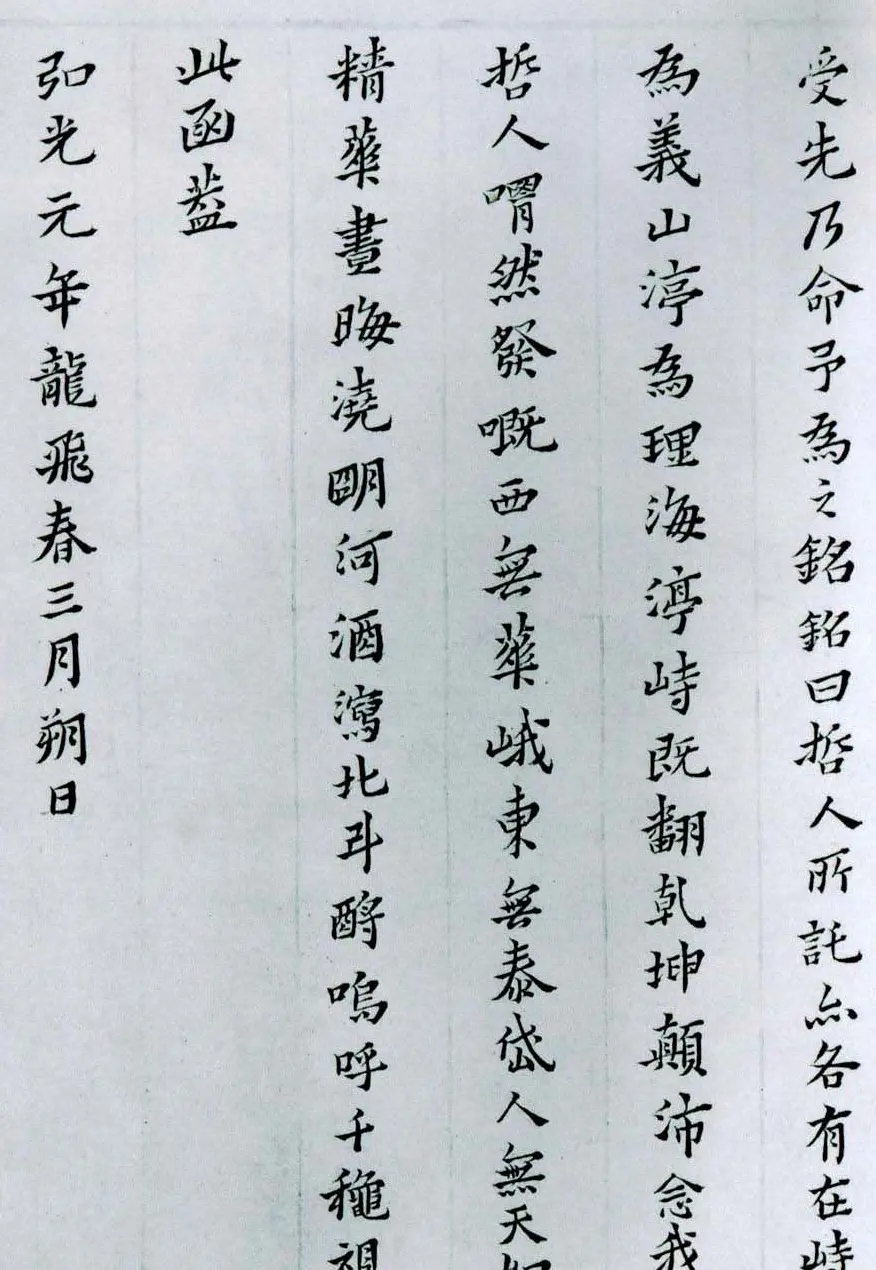 受先乃命予為之銘銘曰哲人所託亦各有在峙
為義山渟為理海渟峙既翻乾坤顛沛念我
哲人喟然發嘅西無華峨東無泰岱人無天
精華晝晦澆朙河酒瀉北斗酹嗚呼千龝視
此函葢
弘光元年龍飛春三月朔日